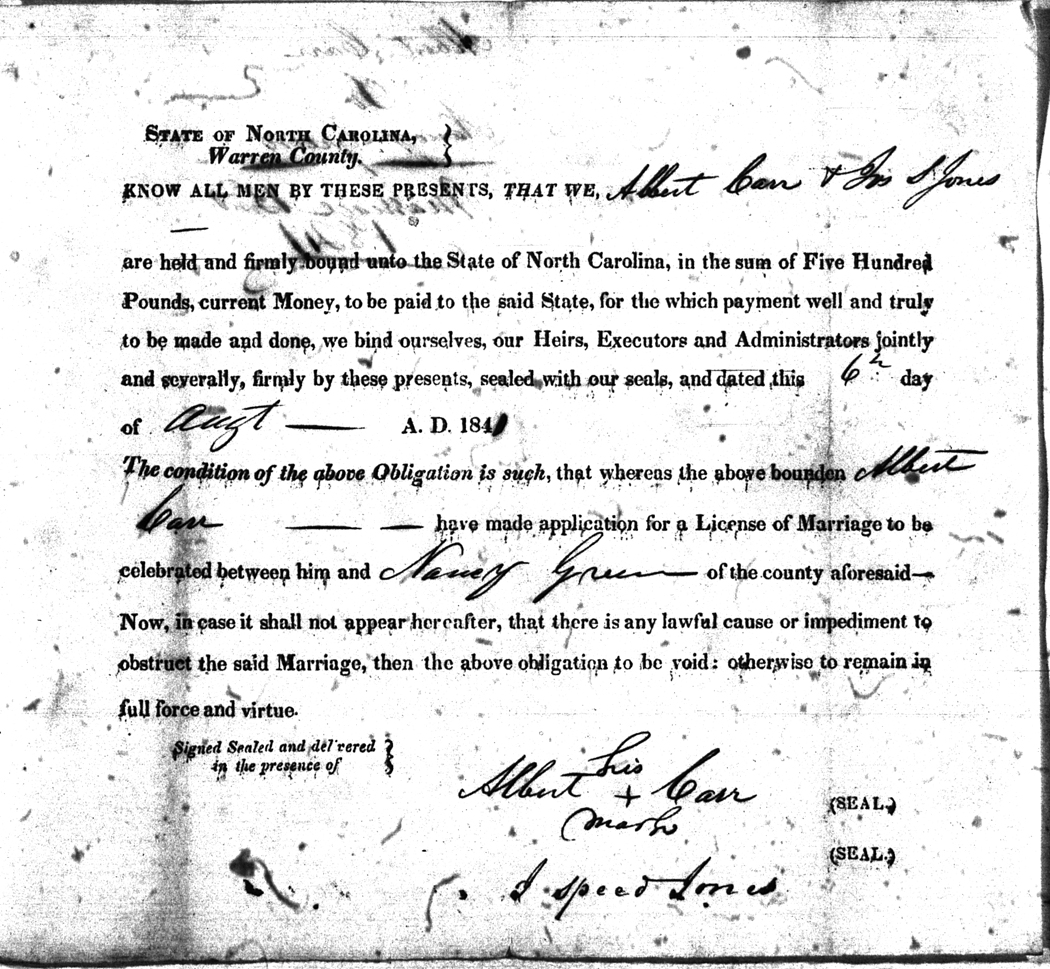 STATE OF NORTH CAROLINA, }
Warren County. }
KNOW ALL MEN BY THESE PRESENTS, THAT WE, Albert Carr & Jos S Jones
are held and firmly bound unto the State of North Carolina, in the sum of Five Hundred
Pounds, current Money, to be paid to the said State, for the which payment well and truly
to be made and done, we bind ourselves, our Heirs, Executors and Administrators jointly
and severally, firmly by these presents, sealed with our seals, and dated this 6th day
of Augt — A. D. 1841
The condition of the above Obligation is such, that whereas the above bounden Albert
Carr — — have made application for a License of Marriage to be
celebrated between him and Nancy Green — of the county aforesaid—
Now, in case it shall not appear hereafter, that there is any lawful cause or impediment to
obstruct the said Marriage, then the above obligation to be void: otherwise to remain in
full force and virtue.
Signed Sealed and delivered }
in the presence of }
his
Albert + Carr (SEAL.)
mark
(SEAL.)
J speed Jones